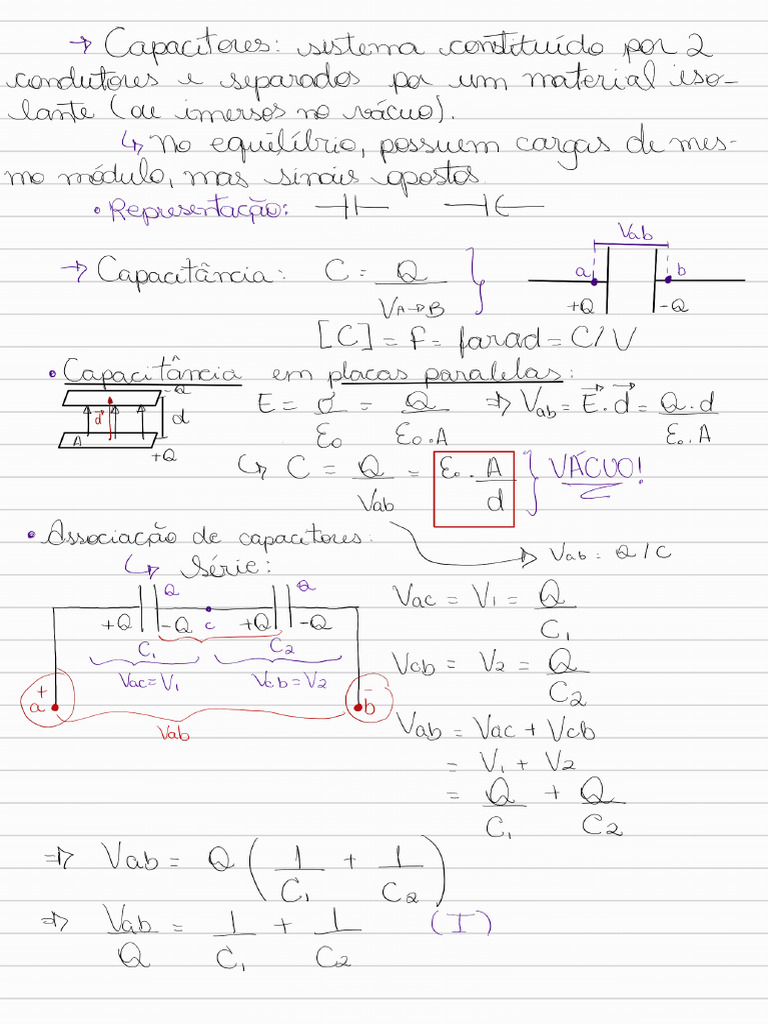 → Capacitores: sistema constituído por 2
condutores e separados por um material iso-
lante (ou imersos no vácuo).
↳ No equilíbrio, possuem cargas de mes-
mo módulo, mas sinais opostos
• Representação:
Vab
a b
+Q -Q
→ Capacitância: C = Q / V A→B
[C] = F = farad = C/V
• Capacitância em placas paralelas:
-Q
d
d
A
+Q
E = σ / ε₀ = Q / ε₀.A ⇒ Vab = E⃗.d⃗ = Q.d / ε₀.A
↳ C = Q / Vab = ε₀.A / d } VÁCUO!
• Associação de capacitores:
Vab = Q/C
↳ Série:
Q Q
+Q -Q c +Q -Q
C₁ C₂
Vac=V₁ Vcb=V₂
+ -
a b
Vab
Vac = V₁ = Q / C₁
Vcb = V₂ = Q / C₂
Vab = Vac + Vcb
= V₁ + V₂
= Q / C₁ + Q / C₂
⇒ Vab = Q (1 / C₁ + 1 / C₂)
⇒ Vab / Q = 1 / C₁ + 1 / C₂ (I)